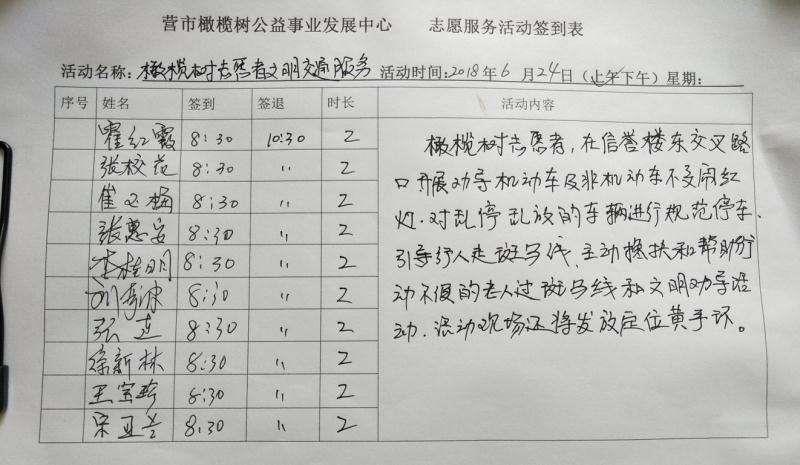 营市橄榄树公益事业发展中心 志愿服务活动签到表
活动名称：橄榄树志愿者文明交通服务 活动时间：2018年6月24日（上午下午）星期：
序号 姓名 签到 签退 时长 活动内容
霍红霞 8:30 10:30 2
张校范 8:30 〃 2
崔玉梅 8:30 〃 2
张惠安 8:30 〃 2
李桂明 8:30 〃 2
刘 8:30 〃 2
张莲 8:30 〃 2
徐新林 8:30 〃 2
王宝玲 8:30 〃 2
宋亚兰 8:30 〃 2
橄榄树志愿者，在信誉楼东交叉路
口开展劝导机动车及非机动车不要闯红
灯.对乱停乱放的车辆进行规范停车、
引导行人走斑马线、主动搀扶和帮助行
动不便的老人过斑马线和文明劝导活
动.活动现场还将发放定位黄手环。